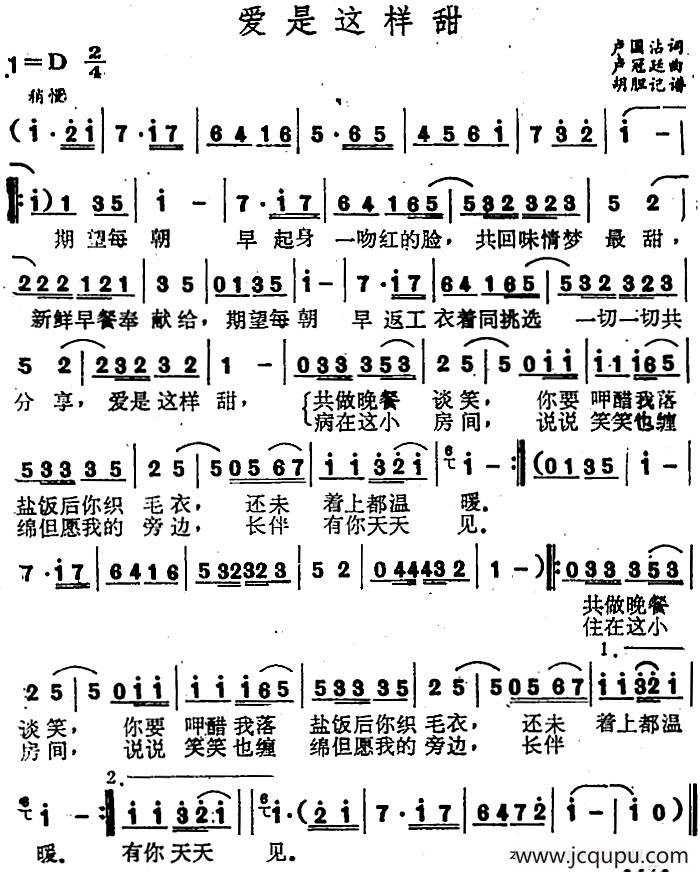 爱是这样甜
1=D 2/4
卢国沾词
卢冠廷曲
胡胆记谱
稍慢
(i·2i | 7·i7 | 6416 | 5·65 | 4561 | 732 | i | i -
i)1 35 | i - | 7·i7 | 64165 | 532323 | 5 2
期望每朝 早起身 一吻红的脸，共回味情梦 最甜，
222121 | 35 | 0135 | i - | 7·i7 | 64165 | 532323
新鲜早餐奉 献给，期望每朝 早返工 衣着同挑选 一切一切共
5 2 | 23232 | 1 - | 033353 | 25 | 50ii | iii65
分享，爱是这样甜，共做晚餐 谈笑， 你要呷醋我落
病在这小 房间， 说说笑笑也缠
533335 | 25 | 50567 | ii32i | i - | (0135 | i -
盐饭后你织 毛衣， 还未 着上都温 暖。
绵但愿我的 旁边， 长伴 有你天天 见。
7·i7 | 6416 | 532323 | 52 | 044432 | 1 -) | 033353
共做晚餐
住在这小
1.
25 | 5 0ii | iii65 | 533335 | 25 | 50567 | ii32i
谈笑， 你要 呷醋我落 盐饭后你织 毛衣， 还未 着上都温
房间， 说说 笑笑也缠 绵但愿我的 旁边， 长伴
2.
i - | ii32i | i·(2i | 7·i7 | 6472 | i - | i0)
暖。 有你天天 见。
www.jcqupu.com